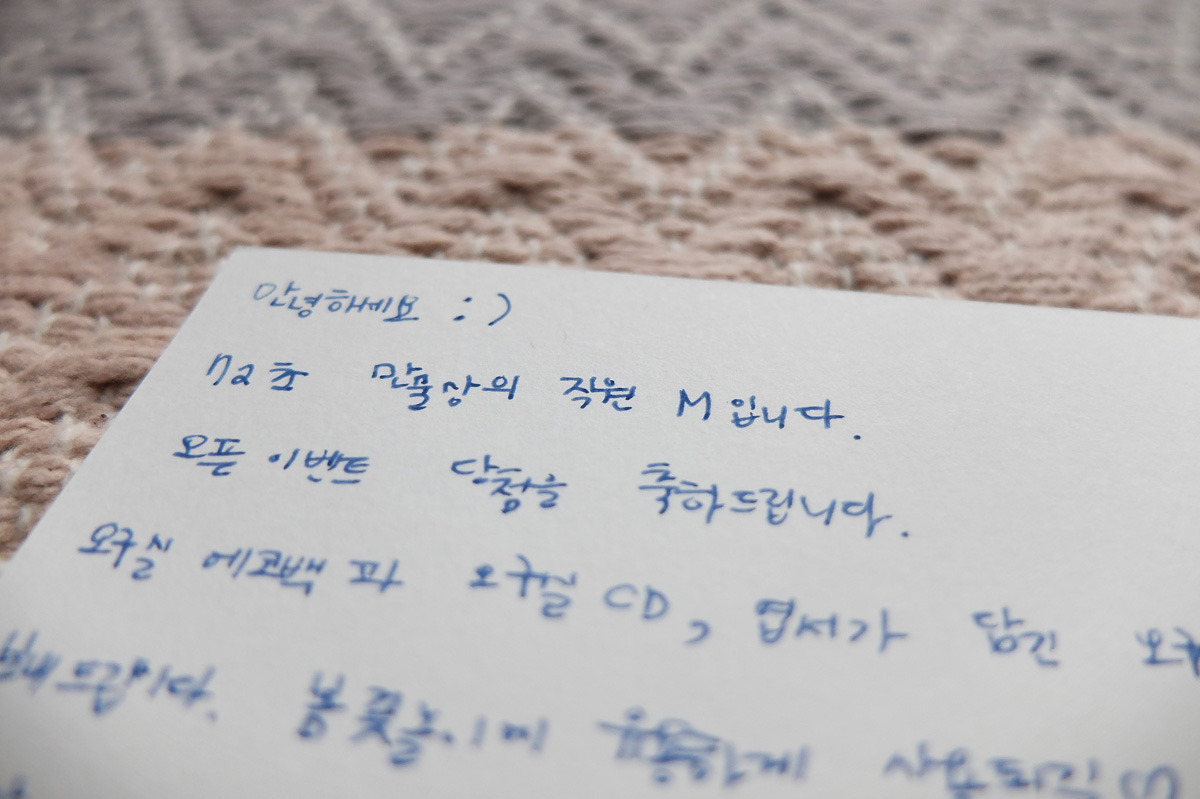 안녕하세요 :)
72초 만물상의 직원 M입니다.
오픈 이벤트 당첨을 축하드립니다.
오구실 에코백과 오구실 CD, 엽서가 담긴 오구
보내드립니다. 봄꽃놀이에 유용하게 사용되길